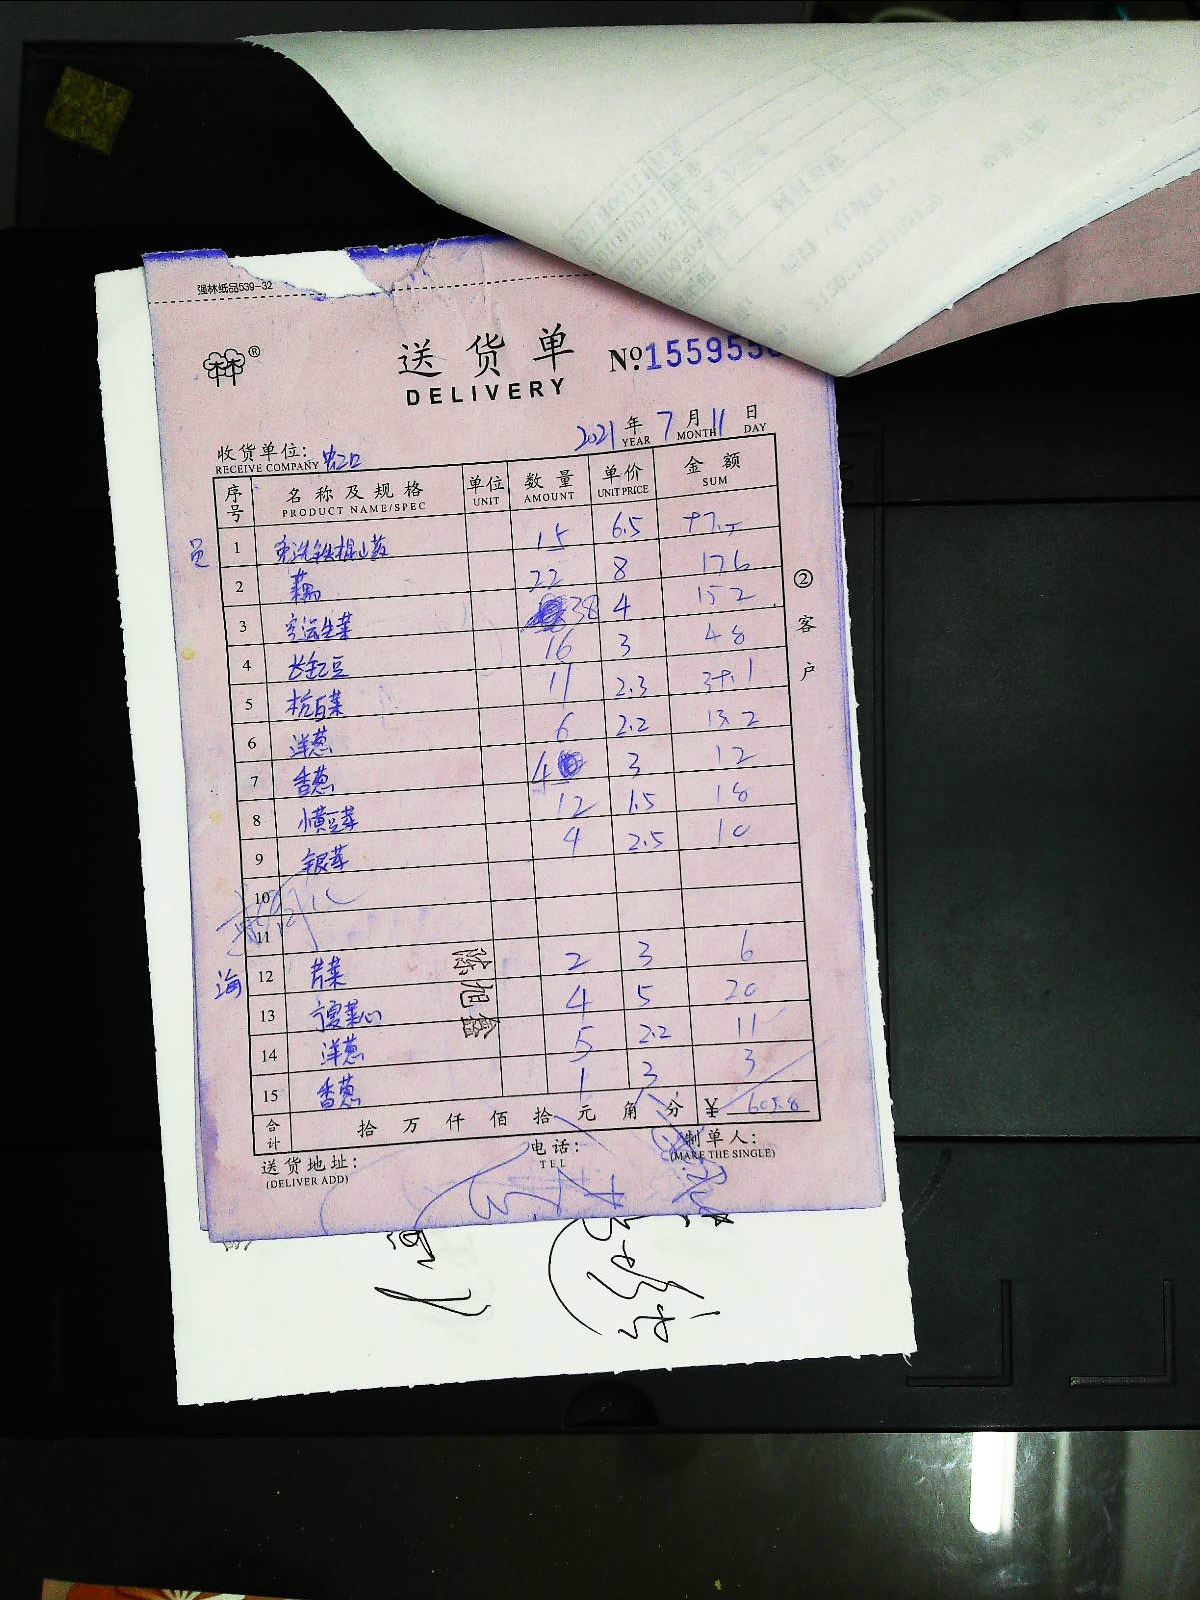 强林纸品539-32
送货单
DELIVERY
®
№:155955
2021 年 7 月 11 日
YEAR MONTH DAY
收货单位: 虹口
RECEIVE COMPANY
序号 名称及规格 单位 数量 单价 金额
PRODUCT NAME/SPEC UNIT AMOUNT UNIT PRICE SUM
员
1 免洗铁棍山药 15 6.5 97.5
2 藕 22 8 176
3 38 4 152
4 长豇豆 16 3 48
5 杭白菜 17 2.3 39.1
6 洋葱 6 2.2 13.2
7 香葱 4 3 12
8 黄豆芽 12 1.5 18
9 银芽 4 2.5 10
10
11
海
12 芹菜 2 3 6
13 4 5 20
14 洋葱 5 2.2 11
15 香葱 1 3 3
合计 拾 万 仟 佰 拾 元 角 分 ¥ 605.8
送货地址:
(DELIVER ADD)
电话:
TEL
制单人:
(MARE THE SINGLE)
②客户